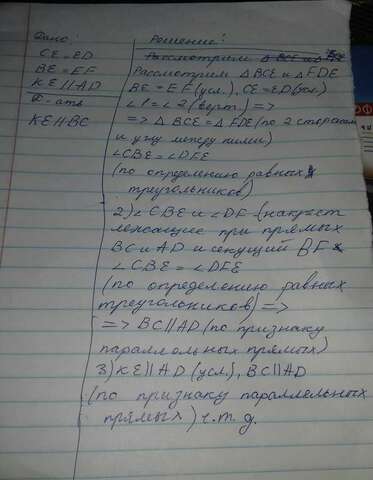 Дано:
CE=ED
BE=EF
KE||AD
Д-ать
KE||BC
Решение:
Рассмотрим △ BCE и △
Рассмотрим △ BCE и △ FDE
BE=EF(усл.), CE=ED(усл)
∠1=∠2(верт.)=>
=> △ BCE=△ FDE(по 2 сторонам
и углу между ними)
∠CBE=∠DFE
(по определению равных
треугольников)
2)∠CBE и ∠DF (накрест
лежащие при прямых
BC и AD и секущий BF
∠CBE=∠DFE
(по определению равных
треугольников)=>
=> BC||AD(по признаку
параллольных прямых)
3)KE||AD(усл), BC||AD
(по признаку параллельных
прямых) ч.т.д.